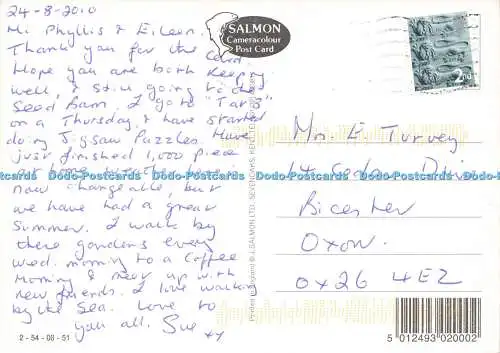 24-8-2010
Hi Phyllis & Eileen.
Thank you for the Card.
Hope you are both keeping
well, & still going to the
Seed Barn. I go to "Tarb"
on a Thursday, & have started
doing Jigsaw Puzzles. Have
just finished 1,000 piece
now changeable, but
we have had a great
Summer. I walk by
these gardens every
wed. morning to a Coffee
Morning & meet up with
new friends. I love walking
by the Sea. Love to
you all. Sue xx
2-54-08-51
SALMON
Cameracolour
Post Card
2nd
Mrs E. Turvey
14
Bicester
Oxon.
OX26 4EZ
Dodo-Postcards Dodo-Postcards Dodo-Postcards Dodo-Postcards Dodo-Postcards
© J. SALMON LTD., SEVENOAKS,
5 012493 020002